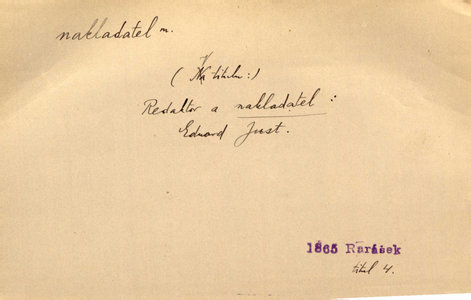 nakladatel m.
(Na titulu:)
Redaktor a nakladatel:
Eduard Just.
1865 Rarášek
titul 4.